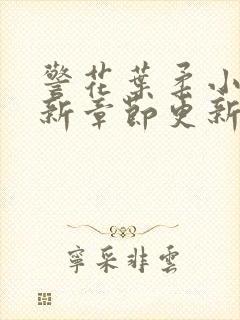 警花葉柔小
新章節更新
寧采非雲